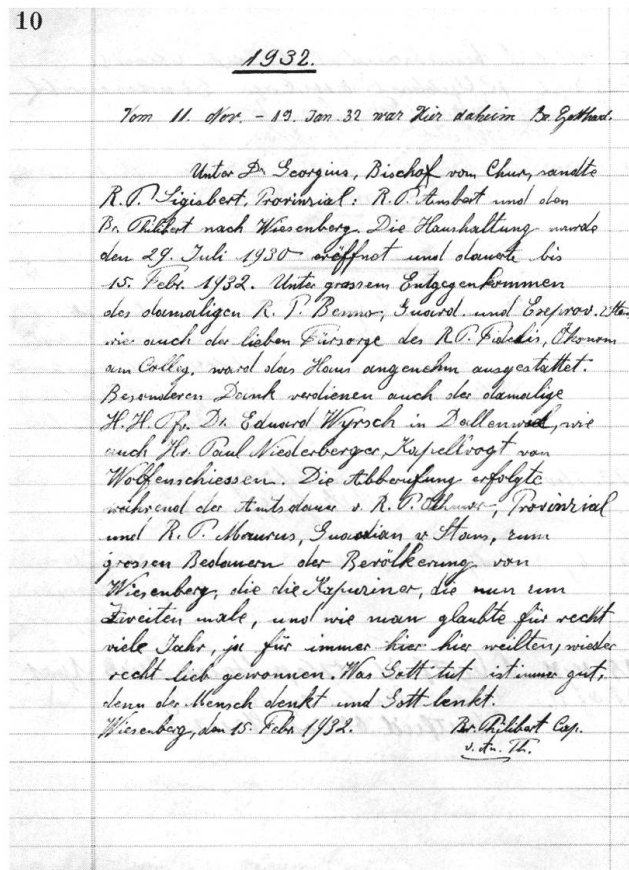 10
1932.
Vom 11. Nov. - 19. Jan. 32 war hier daheim Br.
Unter Dr. Georgius, Bischof vom Chur, sandte
R. P. Sigisbert, Provinzial: R. P. Ambert und den
Br. Philibert nach Wiesenberg. Die Haushaltung wurde
den 29. Juli 1930 eröffnet und dauerte bis
15. Febr. 1932. Unter grossem Entgegenkommen
des damaligen R. P. Benno, Guard. und Exprov.
wie auch der lieben Fürsorge des R. P. Ökonom
am Colleg, ward das Haus angenehm ausgestattet.
Besonderen Dank verdienen auch der damalige
H. H. Pfr. Dr. Eduard Wyrsch in Dallenwil, wie
auch Hr. Paul Niederberger, Kapellvogt von
Wolfenschiessen. Die Abberufung erfolgte
während der Amtsdauer v. R. P. Othmar, Provinzial
und R. P. Maurus, Guardian v. Stans, zum
grossen Bedauern der Bevölkerung von
Wiesenberg, die die Kapuziner, die nun zum
zweiten male, und wie man glaubte für recht
viele Jahr, ja für immer hier hier weilten, wieder
recht lieb gewonnen. Was Gott tut ist immer gut,
denn der Mensch denkt und Gott lenkt.
Wiesenberg, den 15. Febr. 1932. Br. Philibert Cap.
v. Th.